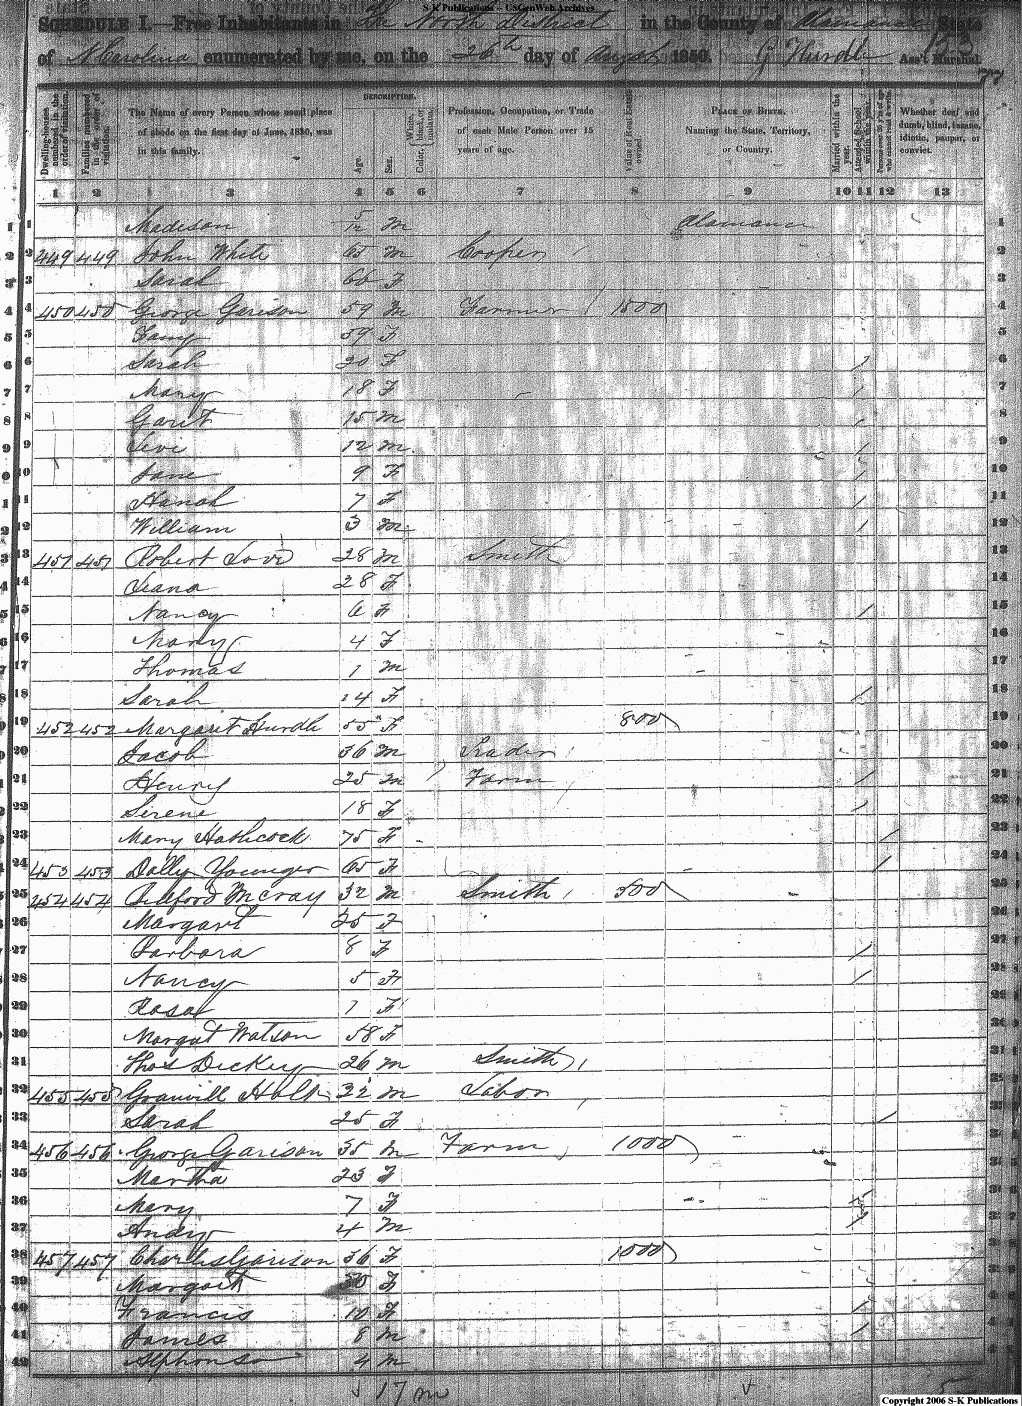 S-K Publications – USGenWeb Archives
SCHEDULE I.—Free Inhabitants in the North District in the County of Alamance State
of N Carolina enumerated by me, on the 26th day of August 1850. G Hurdle Ass't Marshal.
77
Dwelling-houses numbered in the order of visitation. Families numbered in the order of visitation. The Name of every Person whose usual place of abode on the first day of June, 1850, was in this family. DESCRIPTION. Age. Sex. Color, White, black, or mulatto. Profession, Occupation, or Trade of each Male Person over 15 years of age. Value of Real Estate owned. PLACE OF BIRTH. Naming the State, Territory, or Country. Married within the year. Attended School within the year. Persons over 20 y'rs of age who cannot read & write. Whether deaf and dumb, blind, insane, idiotic, pauper, or convict.
1 2 3 4 5 6 7 8 9 10 11 12 13
1 Madison 5/12 m Alamance 1
2 449 449 John White 65 m Cooper 2
3 Sarah 66 F 3
4 450 450 George Garison 59 m Farmer 1500 4
5 59 F 5
6 Sarah 20 F 1 6
7 Mary 18 F 1 7
8 Garit 15 m 1 8
9 Levi 12 m 1 9
10 Jane 9 F 1 10
11 Hanah 7 F 1 11
12 William 3 m 1 12
13 451 451 Robert Love 28 m Smith 13
14 28 F 14
15 Nancy 6 F 1 15
16 Mary 4 F 16
17 Thomas 1 m 17
18 Sarah 14 F 1 18
19 452 452 Margaret Hurdle 55 F 800 19
20 Jacob 36 m 20
21 Henry 25 m Farm 1 21
22 Sirene 18 F 1 22
23 Mary Hathcock 75 F 1 23
24 453 453 Dolly Younger 65 F 1 24
25 254 454 Mcray 32 m Smith 500 25
26 Margaret 25 F 26
27 Barbara 8 F 1 27
28 Nancy 5 F 1 28
29 Rosa 1 F 29
30 Margat Watson 58 F 30
31 Thos Dickey 26 m Smith 31
32 455 455 Granvill Holt 32 m Labor 32
33 Sarah 25 F 1 33
34 456 456 George Garison 35 m Farm 1000 34
35 Martha 23 F 35
36 Mary 7 F 1 36
37 Andy 4 m 1 37
38 457 457 Charles Garison 36 F 1000 38
39 Margart 30 F 39
40 Francis 10 F 1 40
41 James 8 m 1 41
42 Alphonso 4 m 42
17 m
Copyright 2006 S-K Publications